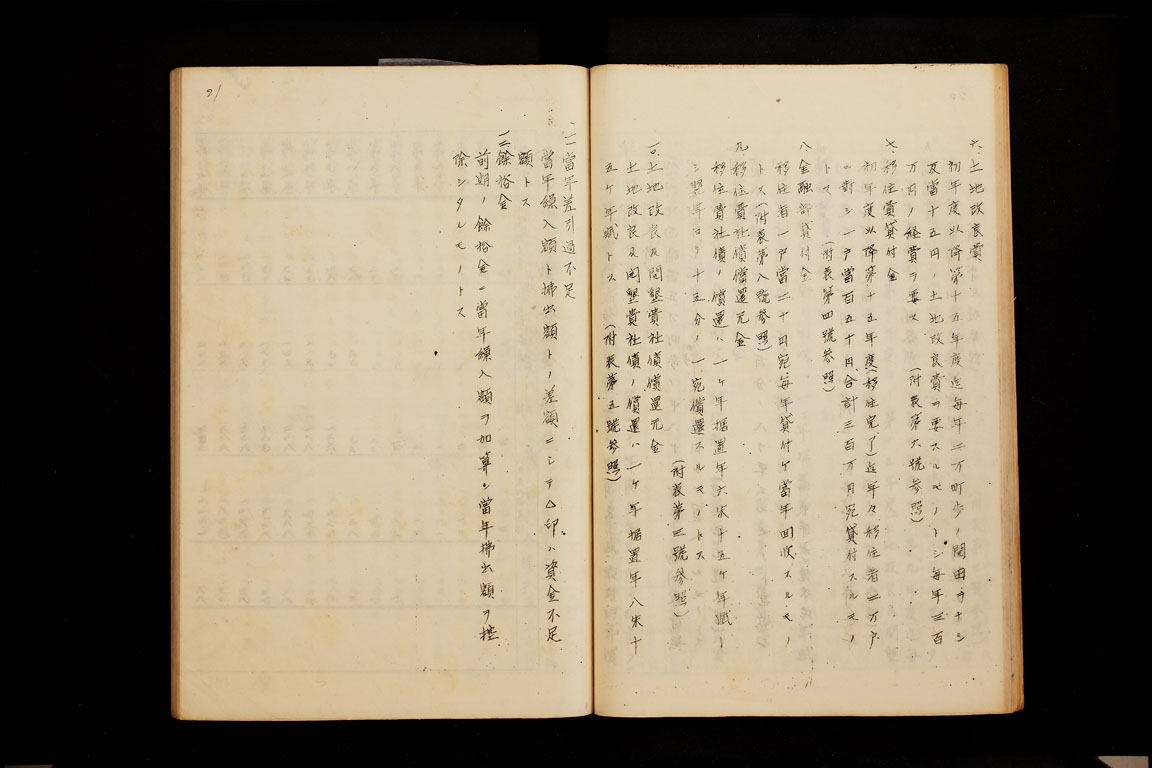 六、土地改良費
初年度以降第十五年度迄毎年二万町歩ノ開田ヲナシ
反當十五円ノ土地改良費ヲ要スルモノトシ毎年三百
万円ノ経費ヲ要ス (附表第六號参照)
七、移住費貸付金
初年度以降第十五年度(移住完了)迄年々移住者二万戸
ニ對シ一戸當百五十円合計三百万円宛貸付スルモノ
トス (附表第四號参照)
八金融部貸付金
移住者一戸當二十円宛毎年貸付ケ當年回収スルモノ
トス(附表第八號参照)
九移住費社債償還元金
移住費社債ノ償還ハ一ケ年据置年六朱十五ケ年賦ト
シ翌年ヨリ十五分ノ一宛償還スルモノトス
(附表第三號参照)
一〇、土地改良及開墾費社債償還元金
土地改良及開墾費社債ノ償還ハ一ケ年据置年八朱十
五ケ年賦トス (附表第五號参照)
一一當年差引過不足
當年繰入額ト拂出額トノ差額ニシテ△印ハ資金不足
額トス
一二餘裕金
前期ノ餘裕金ニ當年繰入額ヲ加算シ當年拂出額ヲ控
除シタルモノトス